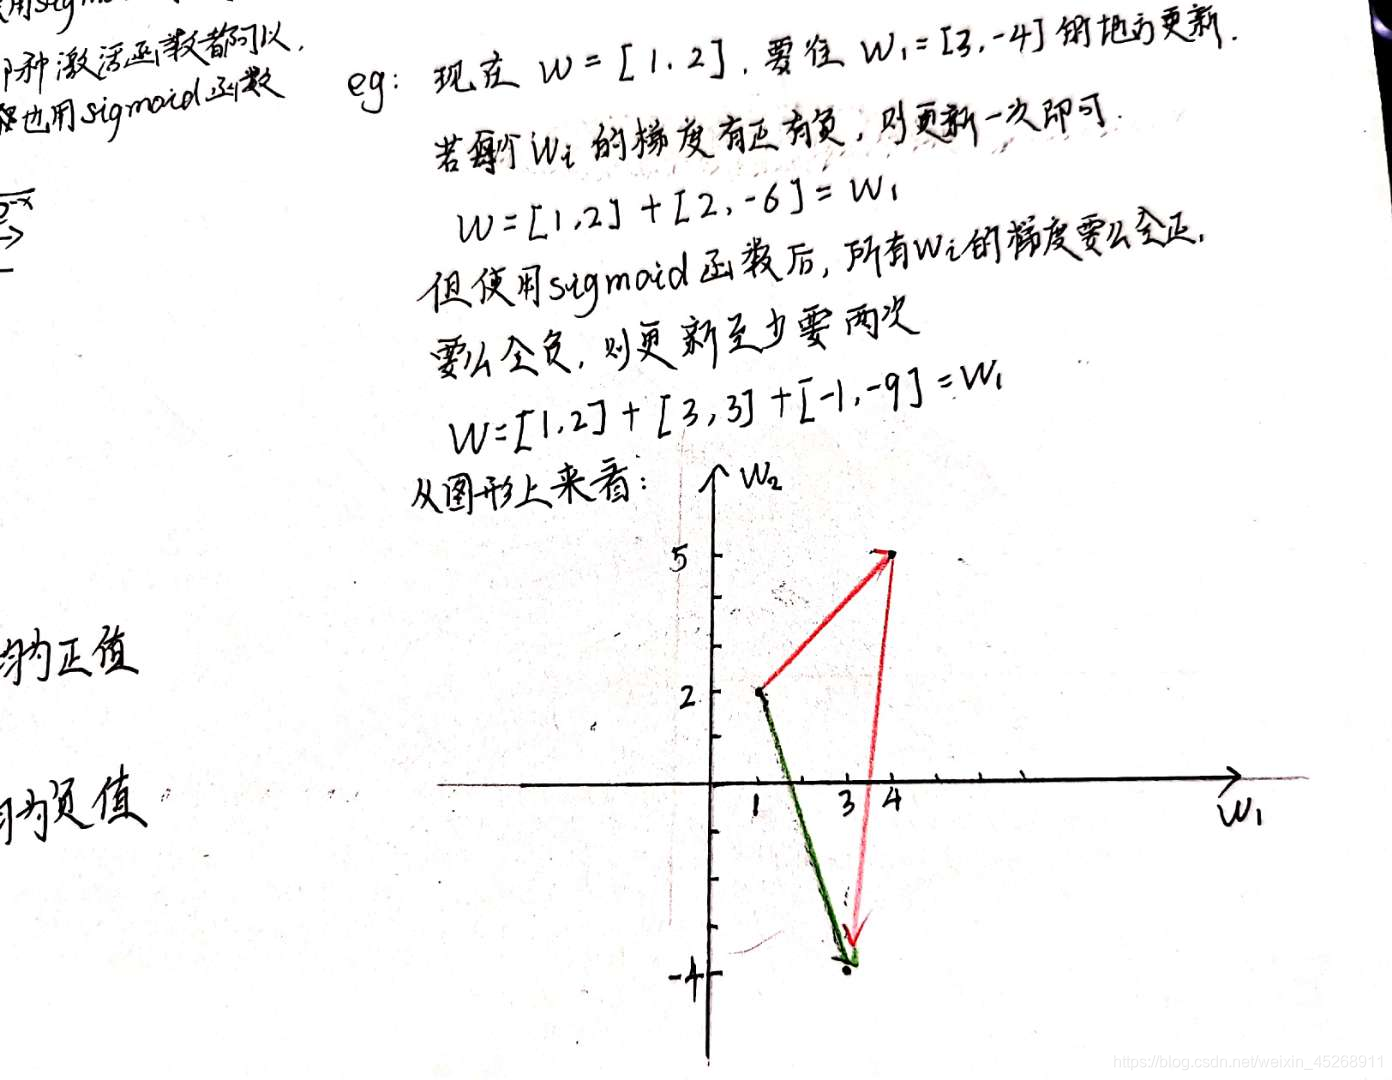 用sigm
种激活函数都可以,
也用sigmoid函数
eg: 现在 W = [1, 2], 要往 W₁ = [3, -4] 的地方更新.
若每个 Wi 的梯度有正有负, 则更新一次即可.
W = [1,2] + [2, -6] = W₁
但使用sigmoid函数后, 所有Wi的梯度要么全正,
要么全负, 则更新至少要两次
W = [1,2] + [3,3] + [-1,-9] = W₁
从图形上来看:
W₂
5
2
均为正值
1 3 4
W₁
为负值
-4
https://blog.csdn.net/weixin_45268911